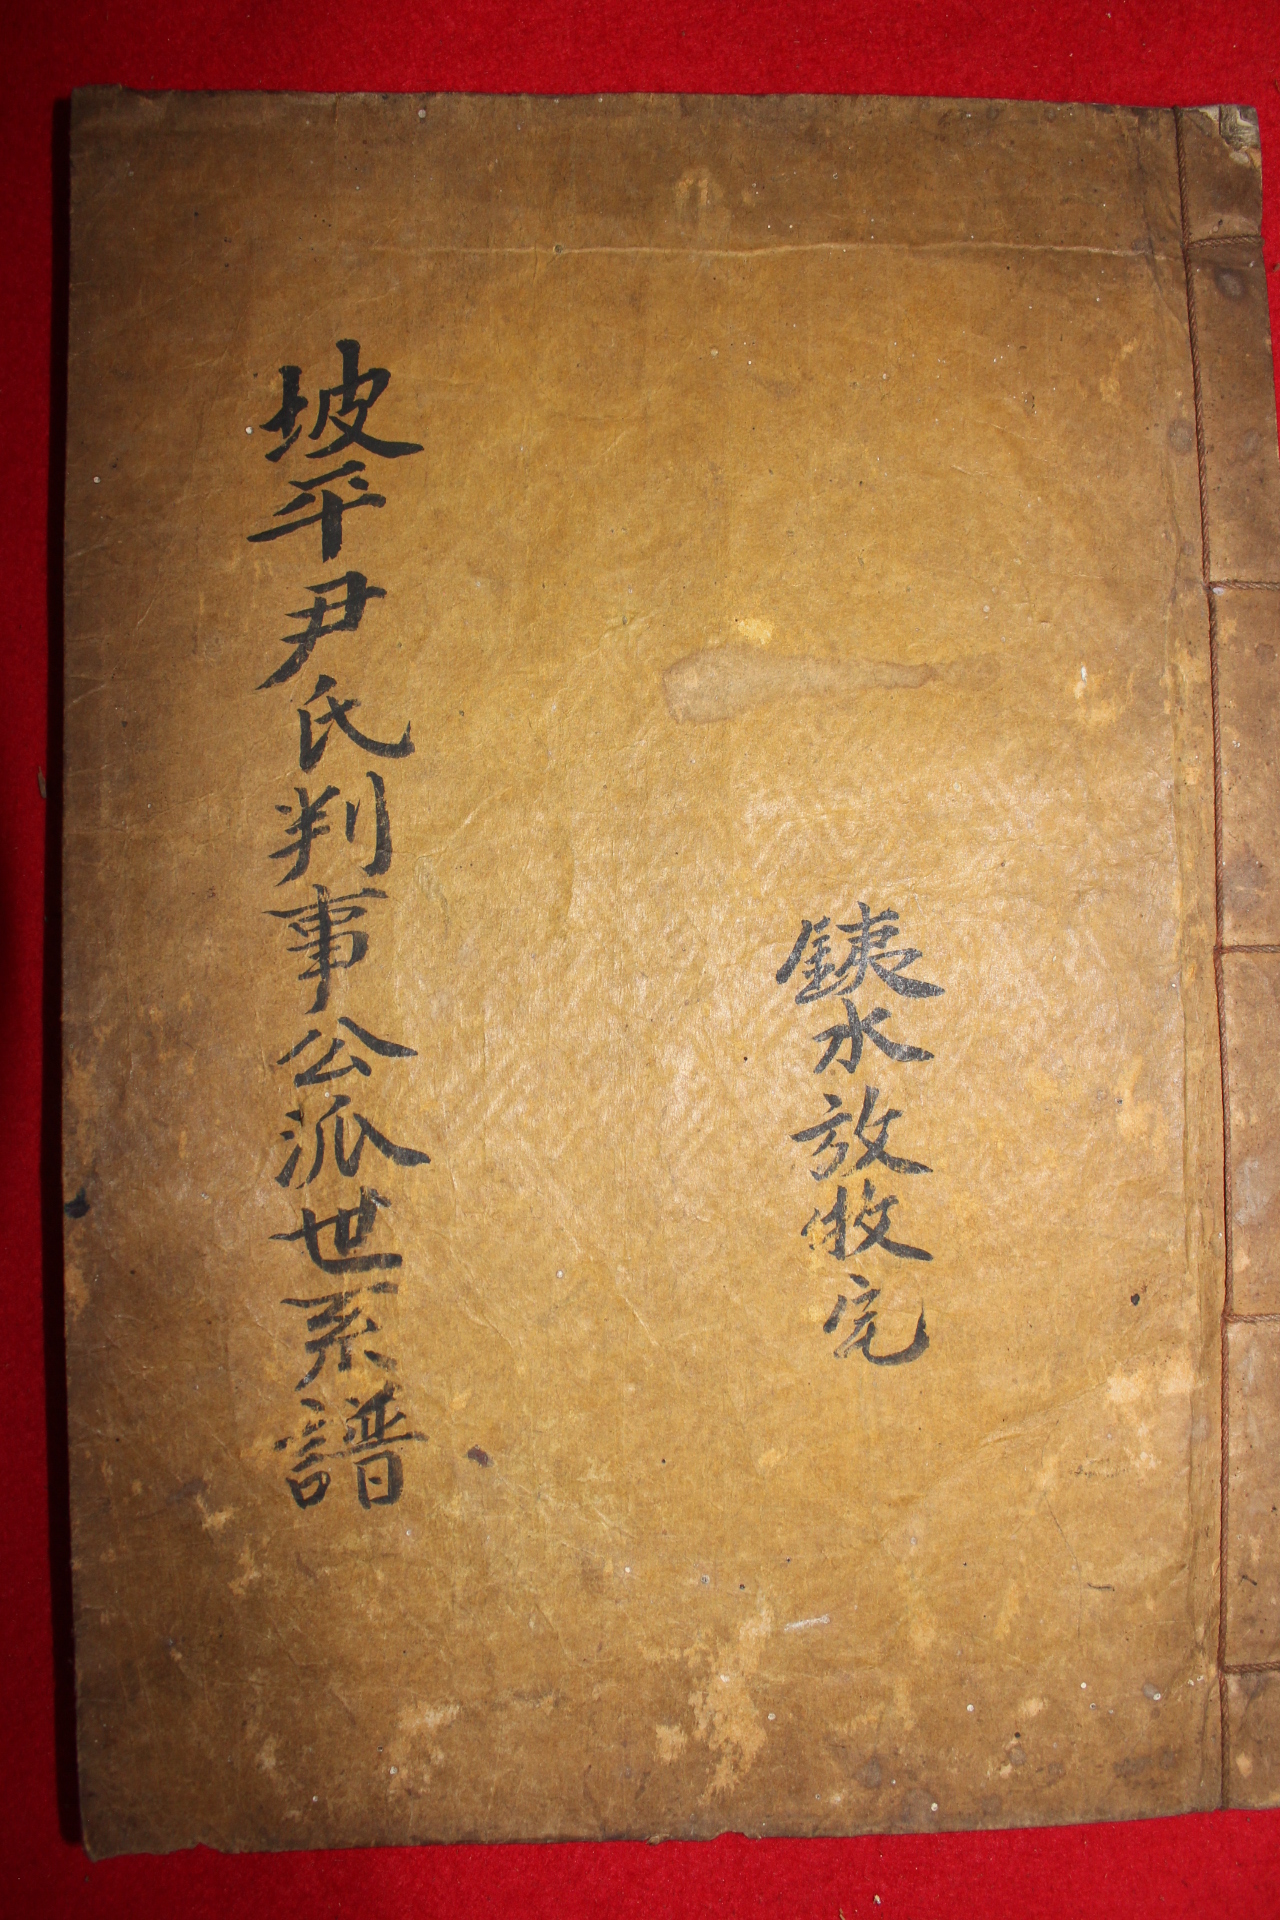 銕水放牧宅
坡平尹氏判事公派世系譜